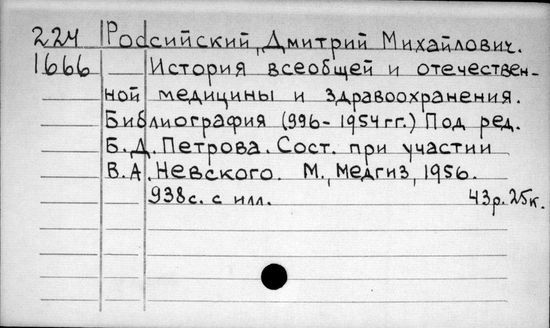 224 Российский, Дмитрий Михайлович.
1666 История всеобщей и отечествен-
ной медицины и здравоохранения.
Библиография (996-1954гг.) Под ред.
Б.Д.Петрова. Сост. при участии
В.А.Невского. М., Медгиз, 1956.
938с. с илл. 43р.25к.